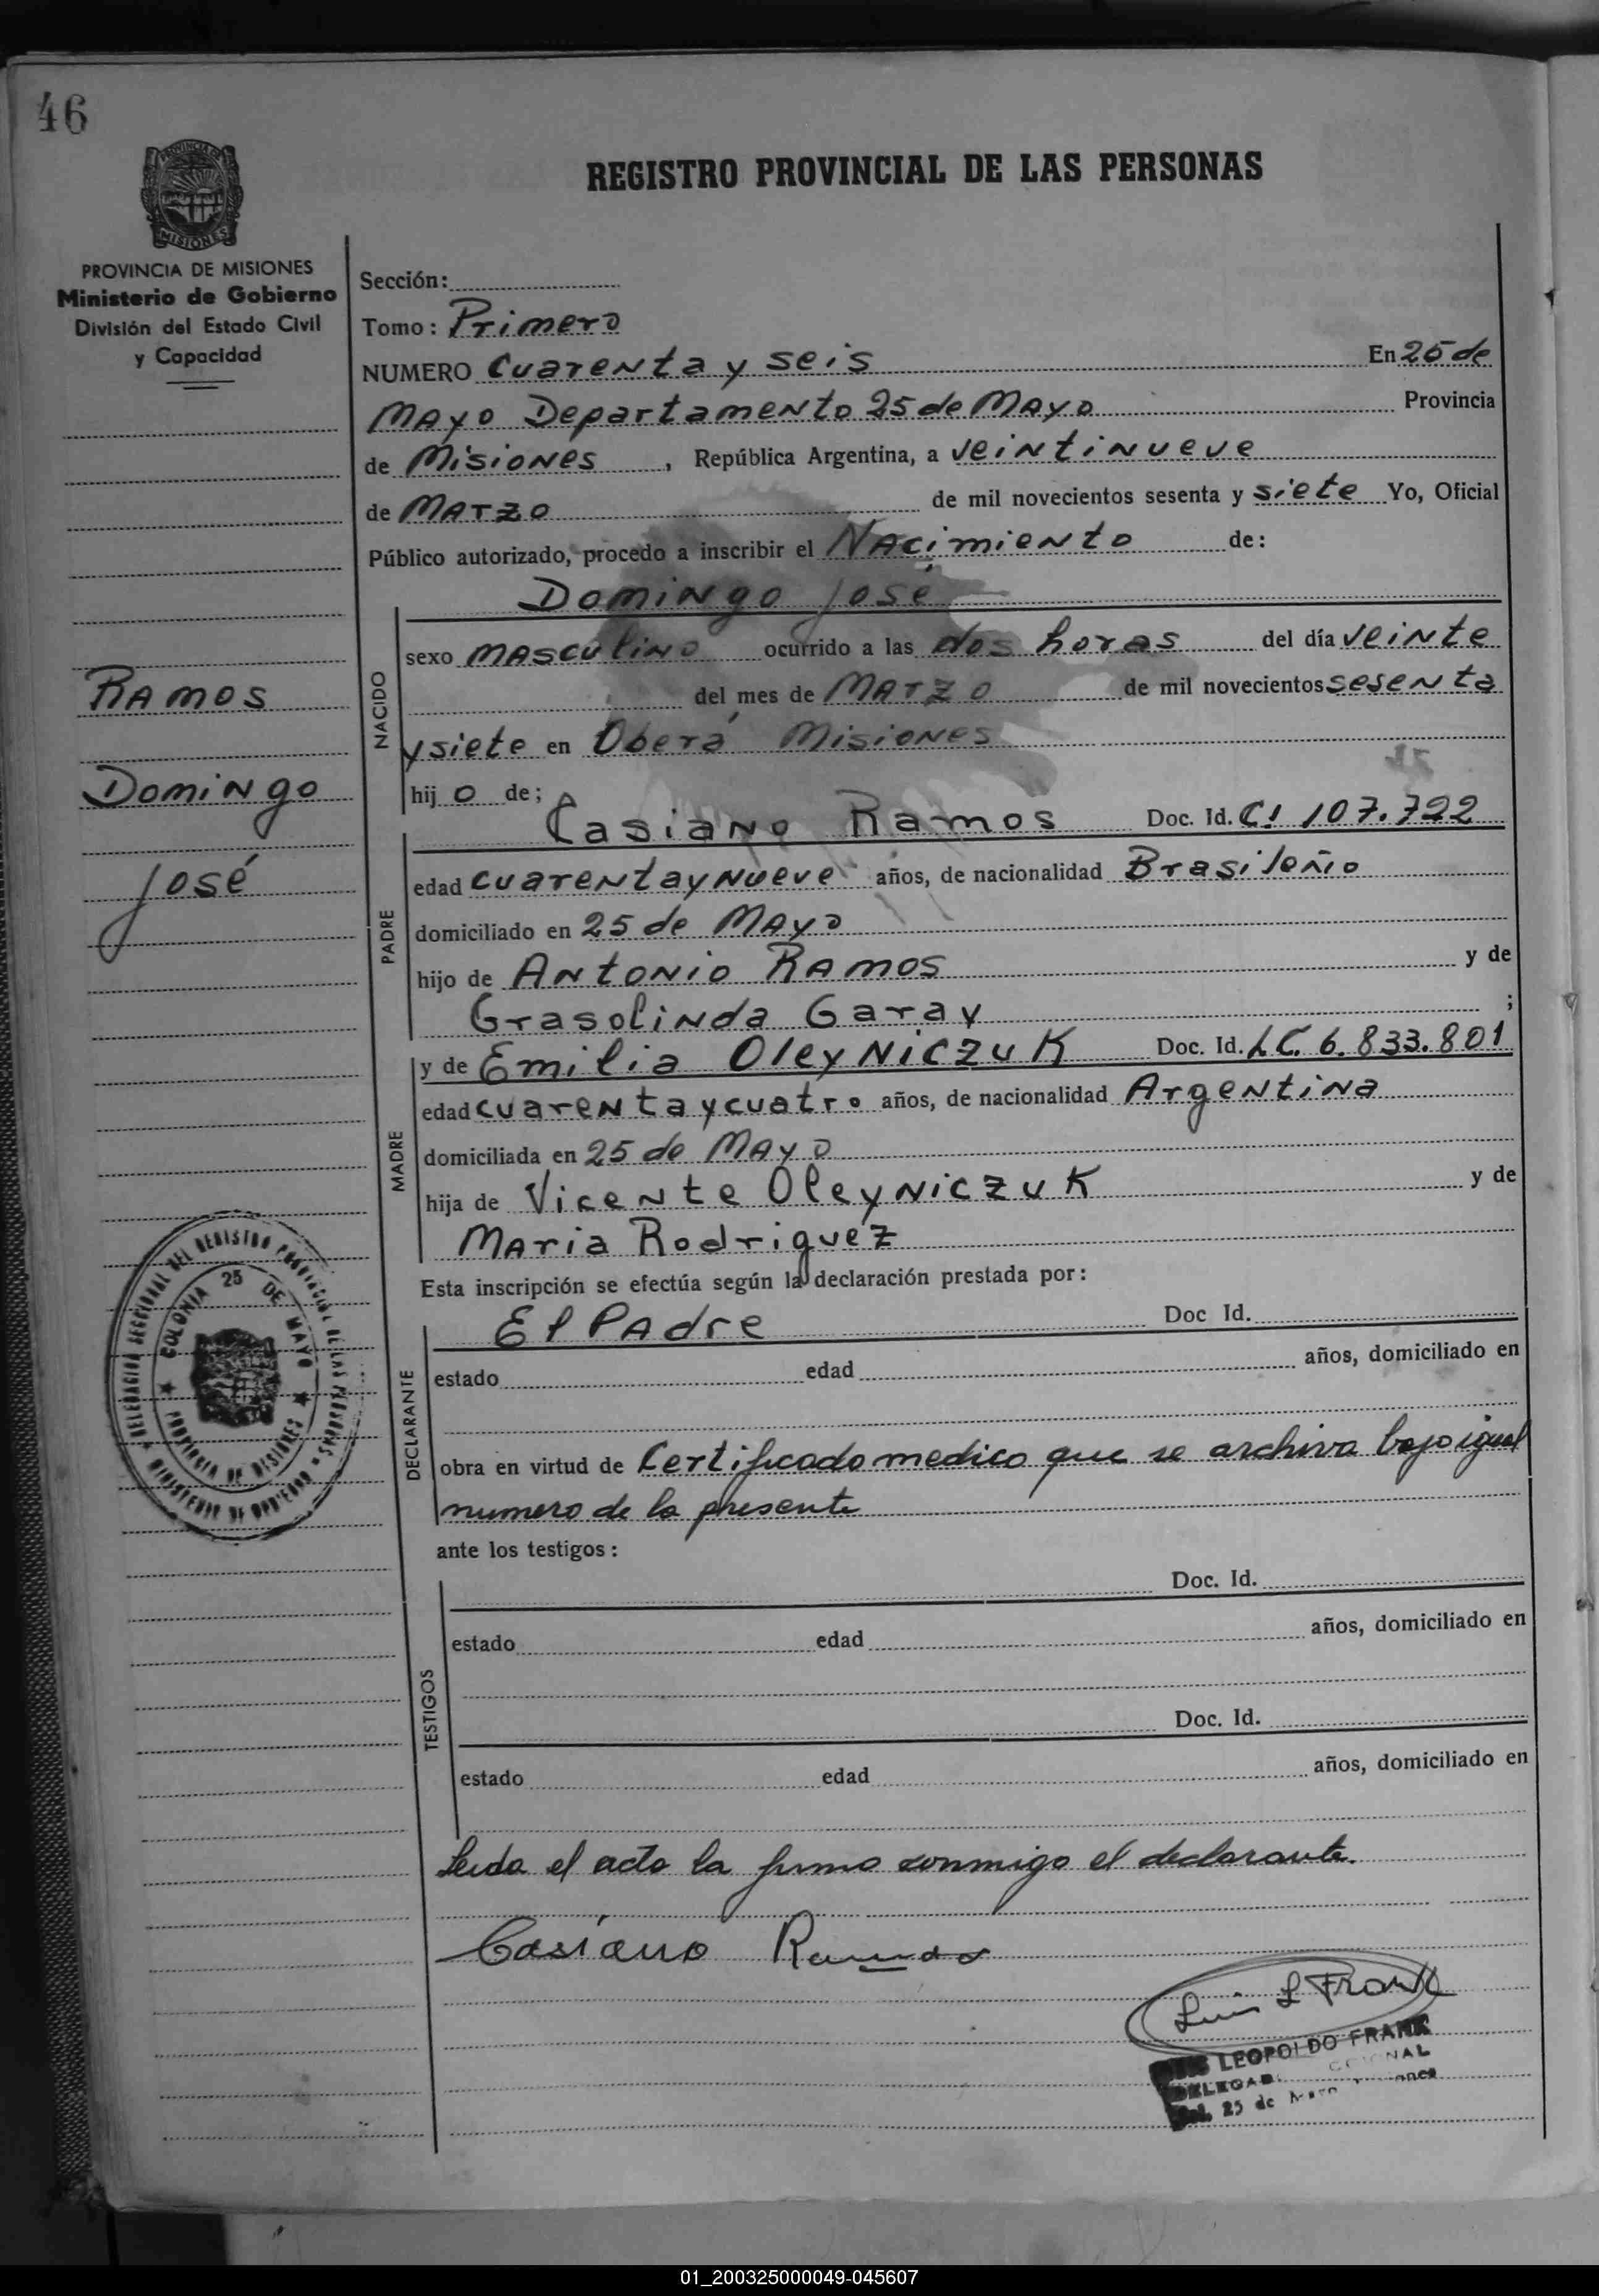 46
REGISTRO PROVINCIAL DE LAS PERSONAS
PROVINCIA DE MISIONES
Ministerio de Gobierno
División del Estado Civil
y Capacidad
Ramos
Domingo
José
Sección:
Tomo: Primero
NUMERO Cuarenta y seis En 25 de
Mayo Departamento 25 de Mayo Provincia
de Misiones, República Argentina, a veintinueve
de Marzo de mil novecientos sesenta y siete Yo, Oficial
Público autorizado, procedo a inscribir el Nacimiento de:
Domingo José
NACIDO
sexo masculino ocurrido a las dos horas del día veinte
del mes de Marzo de mil novecientos sesenta
y siete en Oberá Misiones
hij o de;
Casiano Ramos Doc. Id. C! 107.722
PADRE
edad cuarenta y nueve años, de nacionalidad Brasileño
domiciliado en 25 de Mayo
hijo de Antonio Ramos y de
Grasolinda Garay ;
MADRE
y de Emilia Oleyniczuk Doc. Id. LC. 6.833.801
edad cuarenta y cuatro años, de nacionalidad Argentina
domiciliada en 25 de Mayo
hija de Vicente Oleyniczuk y de
Maria Rodriguez
Esta inscripción se efectúa según la declaración prestada por:
DECLARANTE
El Padre Doc Id.
estado edad años, domiciliado en
obra en virtud de Certificado medico que se archiva bajo igual
numero de la presente
ante los testigos:
TESTIGOS
Doc. Id.
estado edad años, domiciliado en
Doc. Id.
estado edad años, domiciliado en
Leida el acta la firma conmigo el declarante.
Casiano Ramos
Luis L Frank
LEOPOLDO FRANK
25 de
DELEGACION SECCIONAL DEL REGISTRO PROVINCIAL DE LAS PERSONAS
MINISTERIO DE GOBIERNO
COLONIA 25 DE MAYO
PROVINCIA DE MISIONES
01_200325000049-045607